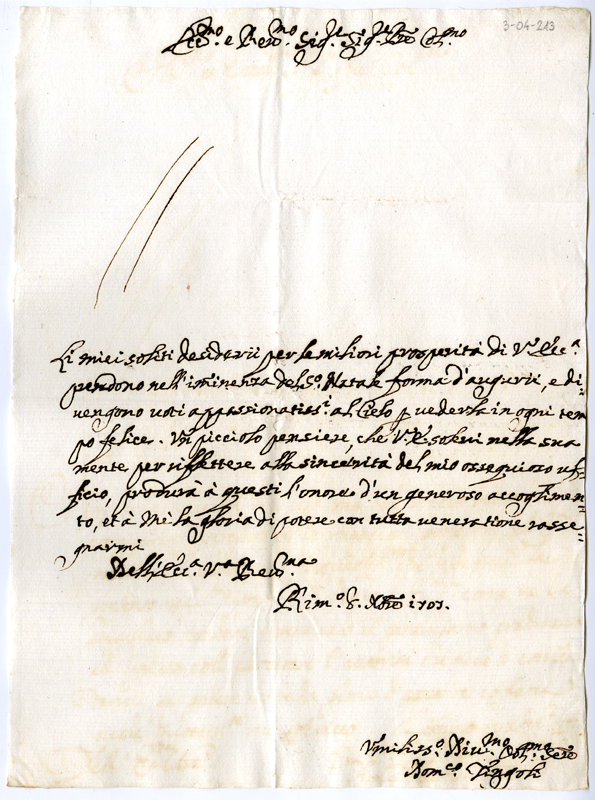 3-04-213
Ecc.mo e Rev.mo Sig.r Sig.r Pre Col.mo
Li miei soliti desiderii per le miliori prosperità di V.a Ecc.a
prendono nell'iminenza del S.o Natale forma d'augurii, e di=
vengono uoti appassionatiss.i al Cielo p uederla in ogni tem
po felice. Un picciolo pensiere, che V.E. soleui nella sua
mente per riflettere alla sincerità del mio ossequioso uf=
ficio, produrà à questi l'onore d'un generoso accoglimen=
to, et à me la gloria di potere con tutta ueneratione rasse=
gnarmi
Dell'Ecc.a V.a Rev.ma
Rim.o 8. Xbre 1707.
Vmiliss.o Diu.mo Obl.mo Sere
Dom.co Tingoli